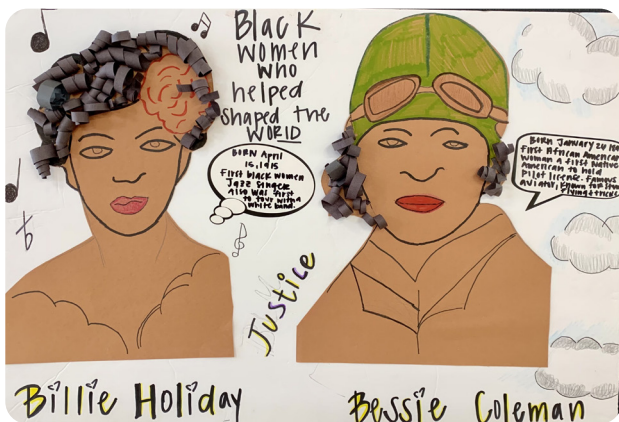 Black
women
who
helped
shaped the
WORlD
BORN April
15, 1915
First black women
Jazz singer
Also was first
to tour with a
white band.
BORN January 26
First African American
woman & first Native
American to hold
Pilot licence. Famous
Aviator, known for
Flying
Justice
Billie Holiday
Bessie Coleman